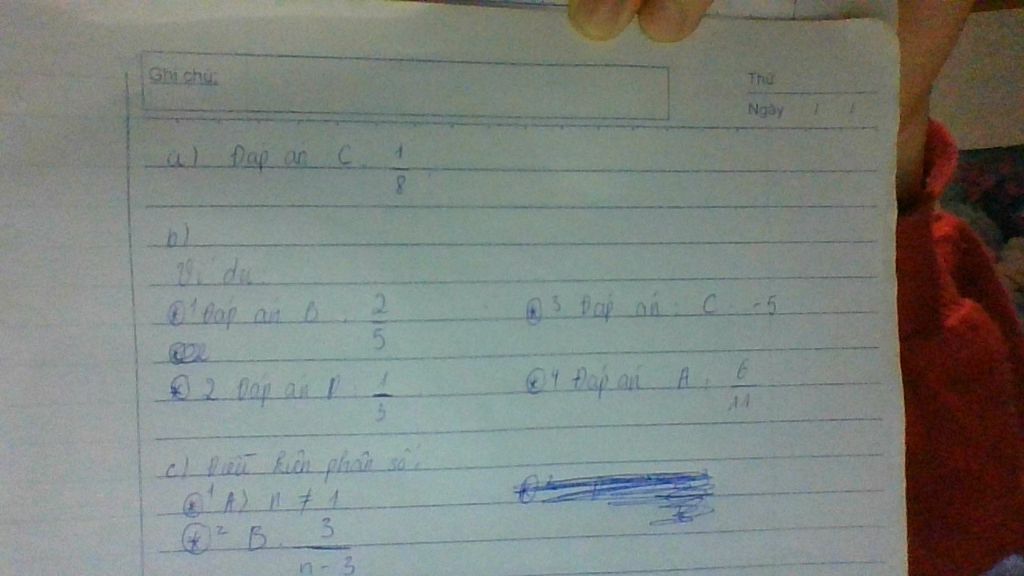 Ghi chú:
Thứ
Ngày / /
a) Đáp án C. 1/8
b)
Ví dụ
* 1 Đáp án D. 2/5
* 3 Đáp án: C. -5
* 2 Đáp án D. 1/3
* 4 Đáp án A. 6/11
c) Điều kiện phân số:
* 1 A) n ≠ 1
* 2 B. 3/n-3